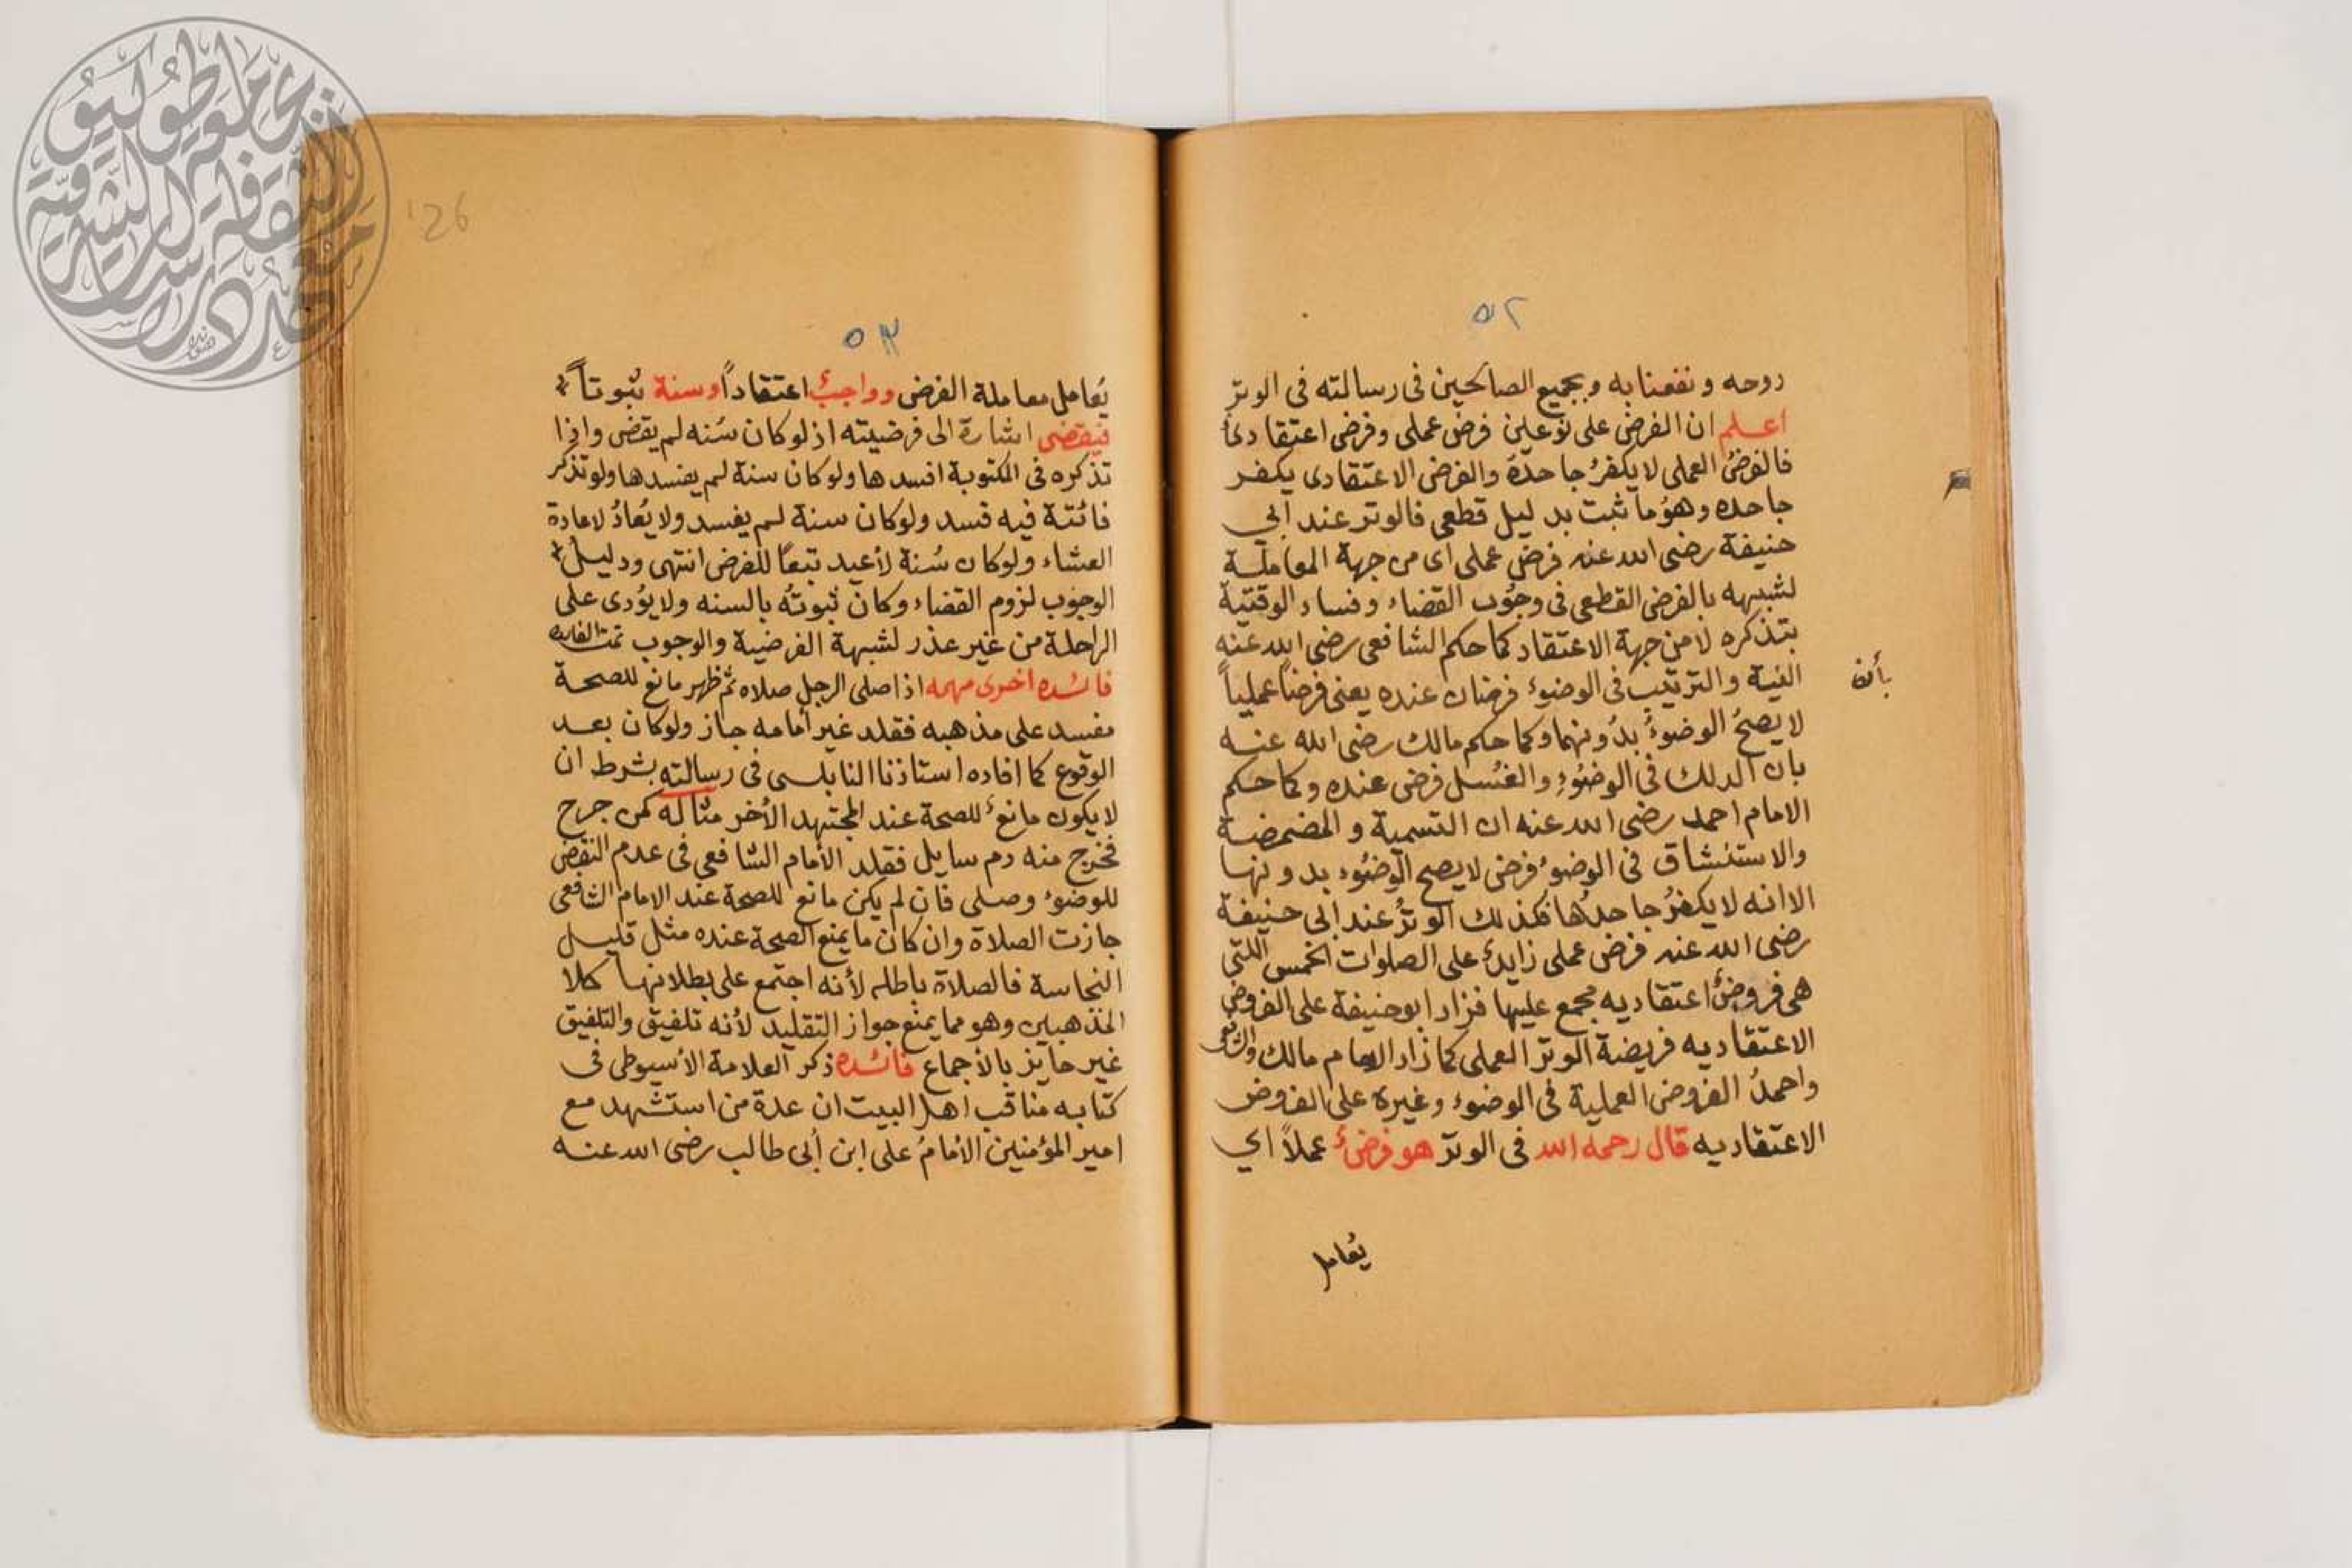 ٥٢
روحه ونفعنا به وبجميع الصالحين فى رسالته فى الوتر
اعلم ان الفرض على نوعين فرض عملى وفرض اعتقادىٌ
فالفرضُ العملى لا يكفرُ جاحدَهُ والفرض الاعتقادى يكفر
جاحده وهوُ ما ثبت بدليل قطعى فالوتر عند ابي
حنيفة رضى الله عنه فرض عملى اى من جهة المعاملة
لشبهه بالفرض القطعى فى وجُوب القضاء وفساد الوقتية
بتذكره لا من جهة الاعتقاد كما حكم الشافعى رضى الله عنه
بأن
النية والترتيب فى الوضوء فرضان عنده يعنى فرضاً عملياً
لا يصحُ الوضوءُ بدُونهما وكما حكم مالك رضى الله عنه
بان الدلك فى الوضوُءِ والغسُل فرض عنده وكما حكم
الامام احمد رضى الله عنه ان التسمية والمضمضة
والاستنشاق فى الوضوءُ فرض لا يصح الوضوُء بدونها
الا انه لا يكفرُ جاحدُها فكذلك الوترُ عند ابى حنيفة
رضى الله عنه فرض عملى زايدٌ على الصلوات الخمس اللتى
هى فروضٌ اعتقاديه مجمع عليها فزاد ابو حنيفة على الفروض
الاعتقاديه فريضة الوتر العملى كما زاد الامام مالك والشافعى
واحمدُ الفروض العملية فى الوضوء وغيره على الفروض
الاعتقاديه قال رحمه الله فى الوتر هو فرضٌ عملاً اي
يُعامل
٥٣
126
يُعامل معاملة الفرض وواجبٌ اعتقاداً وسنة ثبوتاً
فيقضى اشارة الى فرضيته اذ لو كان سُنه لم يقض واذا
تذكره فى المكتوبة افسدها ولو كان سنة لم يفسدها ولو تذكر
فائتة فيه فسد ولو كان سنة لم يفسد ولا يُعادُ لاعادة
العشاء ولو كان سُنة لأعيد تبعًا للفرض انتهى ودليل
الوجوب لزوم القضاء وكان ثبوتُه بالسنه ولا يوُدى على
الراحلة من غير عذر لشبهة الفرضية والوجوب تمت الفايده
فائده اخرى مهمه اذا صلى الرجل صلاه ثم ظهر مانع للصحة
مفسد على مذهبه فقلد غير أمامه جاز ولو كان بعد
الوقوع كما افاده استاذنا النابلسى فى رسالته بشرط ان
لا يكون مانعٌ للصحة عند المجتهد الأخر مثاله كمن جرح
فخرج منه دم سايل فقلد الأمام الشافعى فى عدم النقض
للوضوء وصلى فان لم يكن مانع للصحة عند الامام الشافعى
جازت الصلاة وان كان ما يمنع الصحة عنده مثل قليل
النجاسة فالصلاة باطله لأنه اجتمع على بطلانها كلا
المذهبين وهو مما يمنع جواز التقليد لأنه تلفيق والتلفيق
غير جايز بالأجماع فائده ذكر العلامة الأسيوطى فى
كتابه مناقب اهل البيت ان عدة من استشهد مع
امير المؤمنين الامامُ على ابن أبى طالب رضى الله عنه